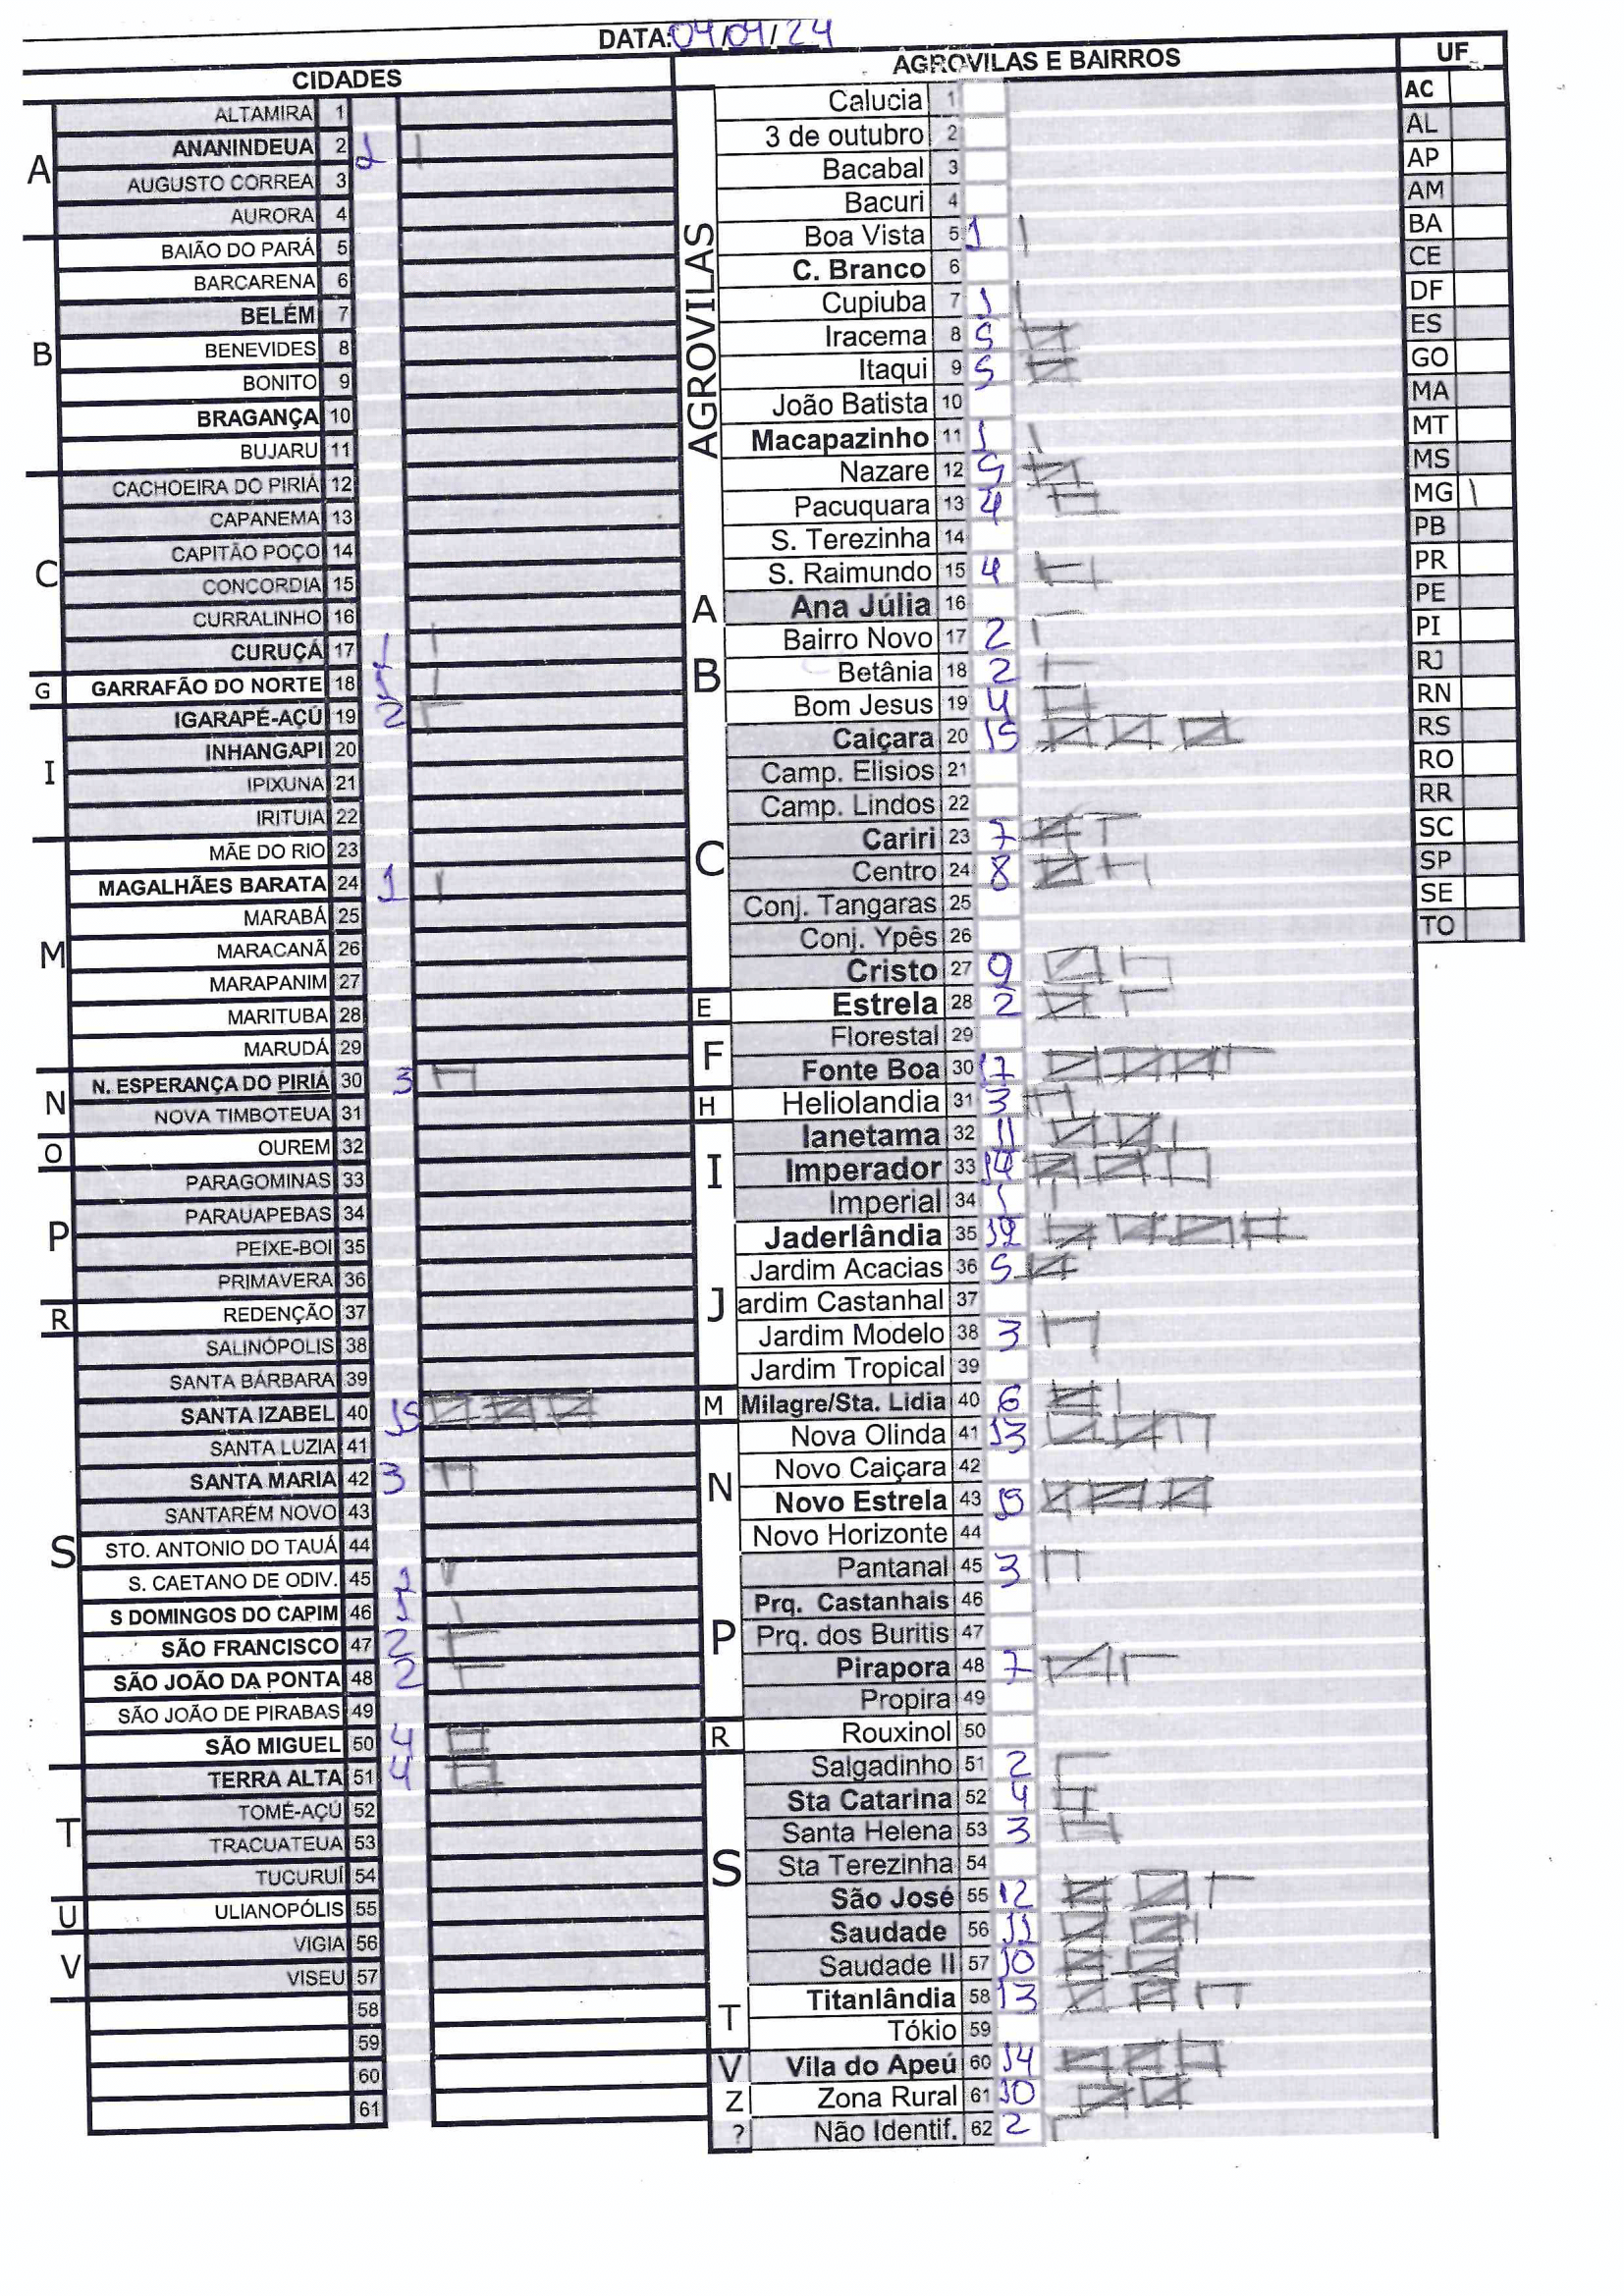 DATA: 04/04/24
CIDADES
A
ALTAMIRA 1
ANANINDEUA 2 1
AUGUSTO CORREA 3
AURORA 4
B
BAIÃO DO PARÁ 5
BARCARENA 6
BELÉM 7
BENEVIDES 8
BONITO 9
BRAGANÇA 10
BUJARU 11
C
CACHOEIRA DO PIRIÁ 12
CAPANEMA 13
CAPITÃO POÇO 14
CONCORDIA 15
CURRALINHO 16
CURUÇÁ 17 1
G
GARRAFÃO DO NORTE 18 1
I
IGARAPÉ-AÇÚ 19 2
INHANGAPI 20
IPIXUNA 21
IRITUIA 22
M
MÃE DO RIO 23
MAGALHÃES BARATA 24 1
MARABÁ 25
MARACANÃ 26
MARAPANIM 27
MARITUBA 28
MARUDÁ 29
N
N. ESPERANÇA DO PIRIÁ 30 3
NOVA TIMBOTEUA 31
O
OUREM 32
P
PARAGOMINAS 33
PARAUAPEBAS 34
PEIXE-BOI 35
PRIMAVERA 36
R
REDENÇÃO 37
S
SALINÓPOLIS 38
SANTA BÁRBARA 39
SANTA IZABEL 40 15
SANTA LUZIA 41
SANTA MARIA 42 3
SANTARÉM NOVO 43
STO. ANTONIO DO TAUÁ 44
S. CAETANO DE ODIV. 45 1
S DOMINGOS DO CAPIM 46 1
SÃO FRANCISCO 47 2
SÃO JOÃO DA PONTA 48 2
SÃO JOÃO DE PIRABAS 49
SÃO MIGUEL 50 4
T
TERRA ALTA 51 4
TOMÉ-AÇÚ 52
TRACUATEUA 53
TUCURUÍ 54
U
ULIANOPÓLIS 55
V
VIGIA 56
VISEU 57
58
59
60
61
AGROVILAS E BAIRROS
AGROVILAS
Calucia 1
3 de outubro 2
Bacabal 3
Bacuri 4
Boa Vista 5 1
C. Branco 6
Cupiuba 7 1
Iracema 8 5
Itaqui 9 5
João Batista 10
Macapazinho 11 1
Nazare 12 5
Pacuquara 13 4
S. Terezinha 14
S. Raimundo 15 4
A
Ana Júlia 16
B
Bairro Novo 17 2
Betânia 18 2
Bom Jesus 19 4
C
Caiçara 20 15
Camp. Elisios 21
Camp. Lindos 22
Cariri 23 7
Centro 24 8
Conj. Tangaras 25
Conj. Ypês 26
Cristo 27 9
E
Estrela 28 2
F
Florestal 29
Fonte Boa 30 17
H
Heliolandia 31 3
I
Ianetama 32 11
Imperador 33 14
Imperial 34 1
J
Jaderlândia 35 19
Jardim Acacias 36 5
ardim Castanhal 37
Jardim Modelo 38 3
Jardim Tropical 39
M
Milagre/Sta. Lidia 40 6
N
Nova Olinda 41 13
Novo Caiçara 42
Novo Estrela 43 15
Novo Horizonte 44
P
Pantanal 45 3
Prq. Castanhais 46
Prq. dos Buritis 47
Pirapora 48 7
Propira 49
R
Rouxinol 50
S
Salgadinho 51 2
Sta Catarina 52 4
Santa Helena 53 3
Sta Terezinha 54
São José 55 12
Saudade 56 11
Saudade II 57 10
T
Titanlândia 58 13
Tókio 59
V
Vila do Apeú 60 14
Z
Zona Rural 61 10
?
Não Identif. 62 2
UF
AC
AL
AP
AM
BA
CE
DF
ES
GO
MA
MT
MS
MG
PB
PR
PE
PI
RJ
RN
RS
RO
RR
SC
SP
SE
TO